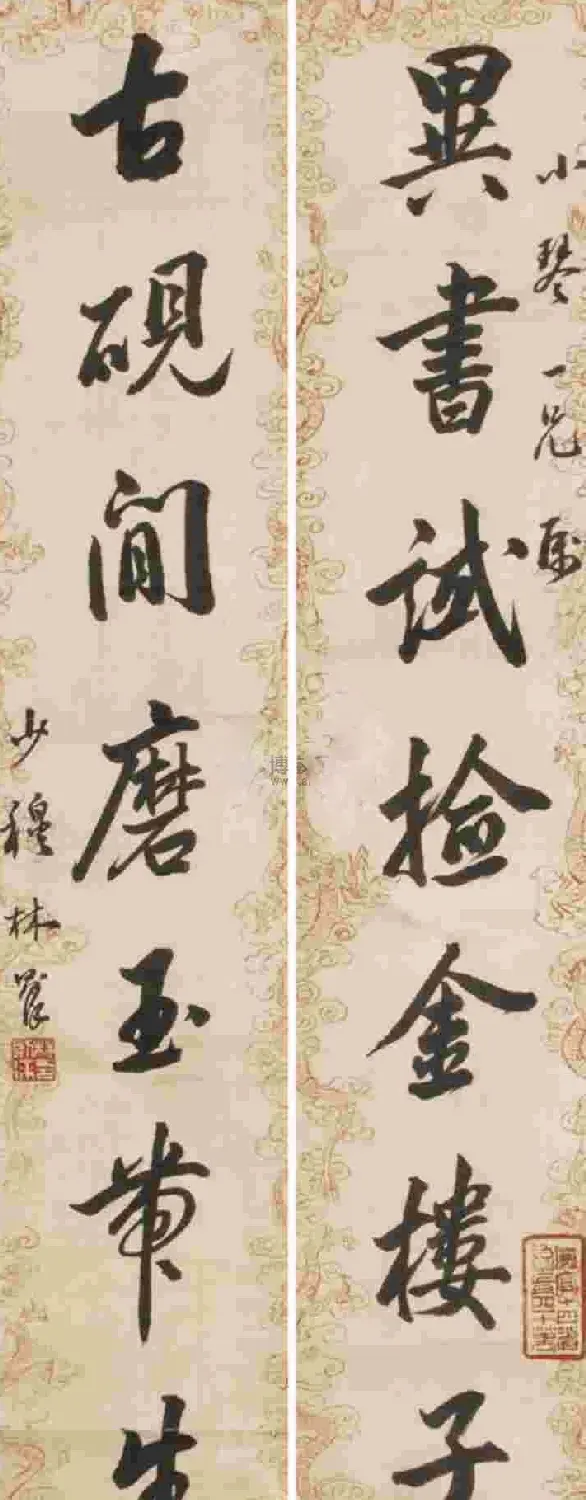 小琴一兄属
異書試撿金樓子
古硯閒磨玉帶生
少穆林則徐